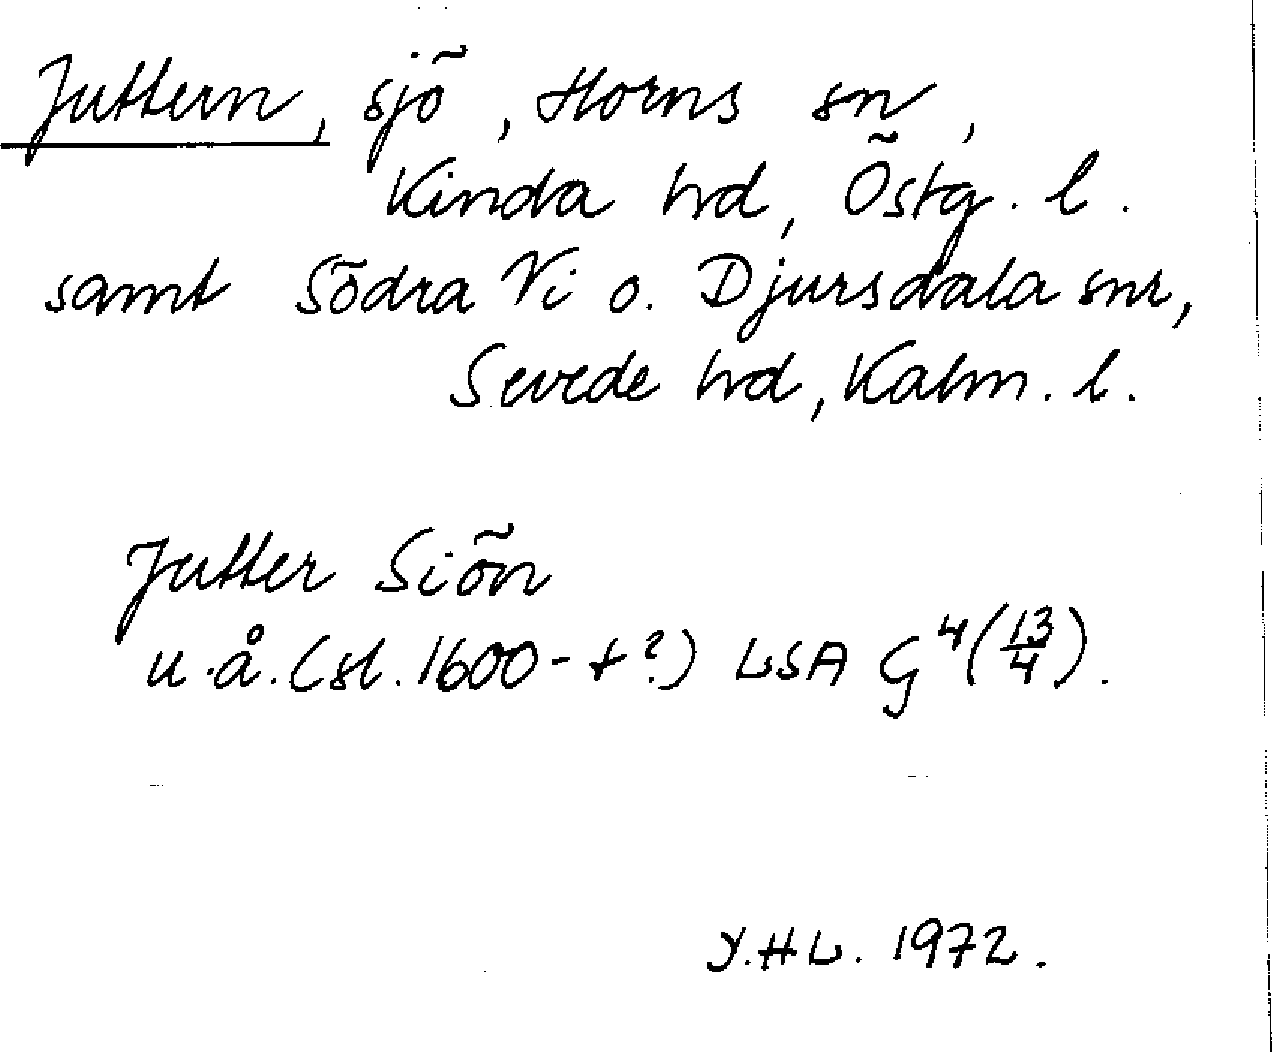 Juttern, sjö, Horns sn,
Kinda hd, Östg. l.
samt Södra Vi o. Djursdala snr,
Sevede hd, Kalm. l.
Jutter Siön
u.å. (sl. 1600-t?) LSA G⁴(13/4).
Y.HL. 1972.